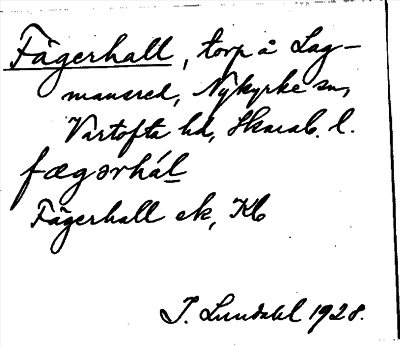 Fägerhall, torp å Lag-
mansred, Nykyrke sn,
Vartofta hd, Skarab. l.
fægərhál
Fägerhall ek, Kb
I. Lundahl 1928.